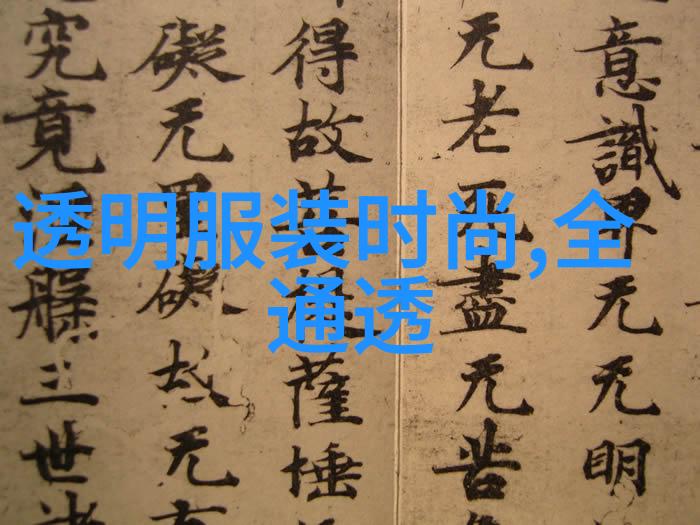 透明服装时尚,全
通透
意識界无无明
无老死盡无苦
得故菩提薩埵
礙无罣礙故无
究竟涅槃三世諸